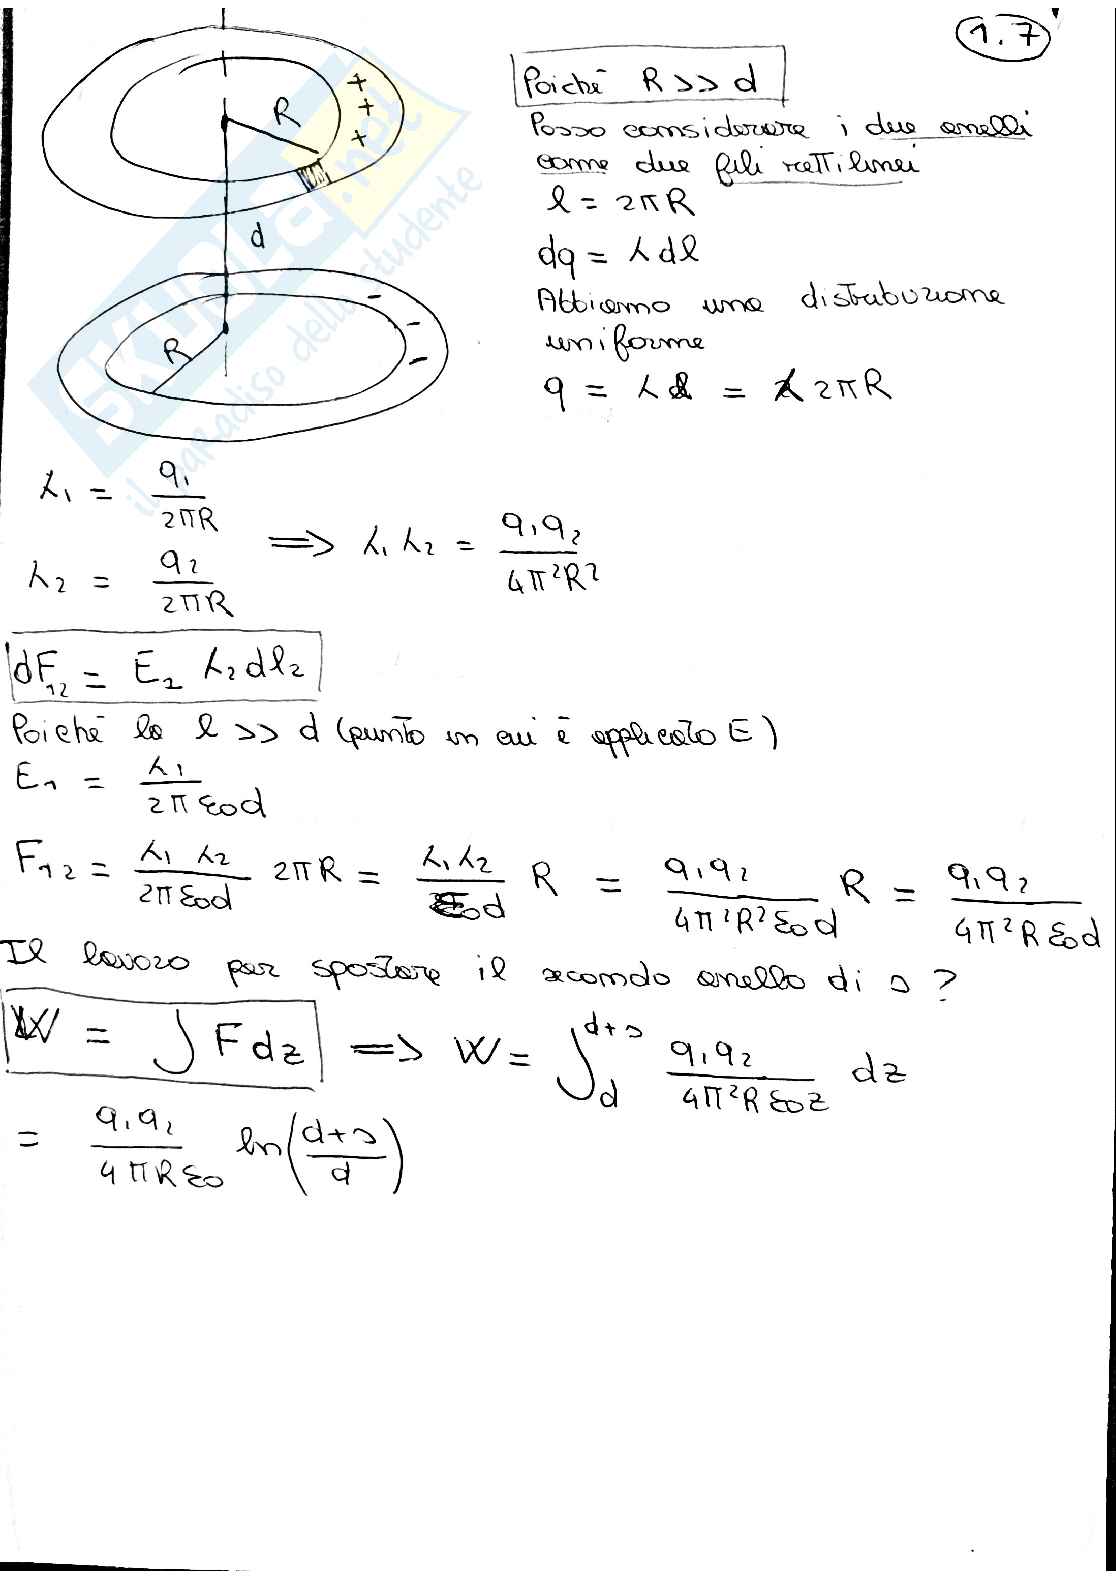 1.7
Poiché R >> d
Posso considerare i due anelli
come due fili rettilinei
l = 2πR
dq = λ dl
Abbiamo una distribuzione
uniforme
q = λl = λ2πR
+ + +
R
d
R
- - -
SKUOLA.net
il paradiso dello studente
λ₁ = q₁/2πR
λ₂ = q₂/2πR
⟹ λ₁λ₂ = q₁q₂/4π²R²
dF₁₂ = E₂ λ₂dl₂
Poiché lo l >> d (punto in cui è applicato E)
E₁ = λ₁/2πε₀d
F₁₂ = λ₁λ₂/2πε₀d 2πR = λ₁λ₂/ε₀d R = q₁q₂/4π²R²ε₀d R = q₁q₂/4π²Rε₀d
Il lavoro per spostare il secondo anello di s?
W = ∫ F dz ⟹ W = ∫_d^{d+s} q₁q₂/4π²Rε₀z dz
= q₁q₂/4πRε₀ ln(d+s/d)